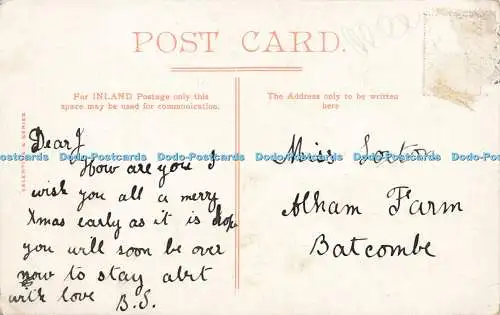 POST CARD.
For INLAND Postage only this
space may be used for communication.
The Address only to be written
here
VALENTINE'S SERIES
Dear J
How are you I
wish you all a merry
Xmas early as it is hope
you will soon be over
now to stay abit
with love B.S.
Miss
Alham Farm
Batcombe
Dodo-Postcards Dodo-Postcards Dodo-Postcards Dodo-Postcards Dodo-Postcards